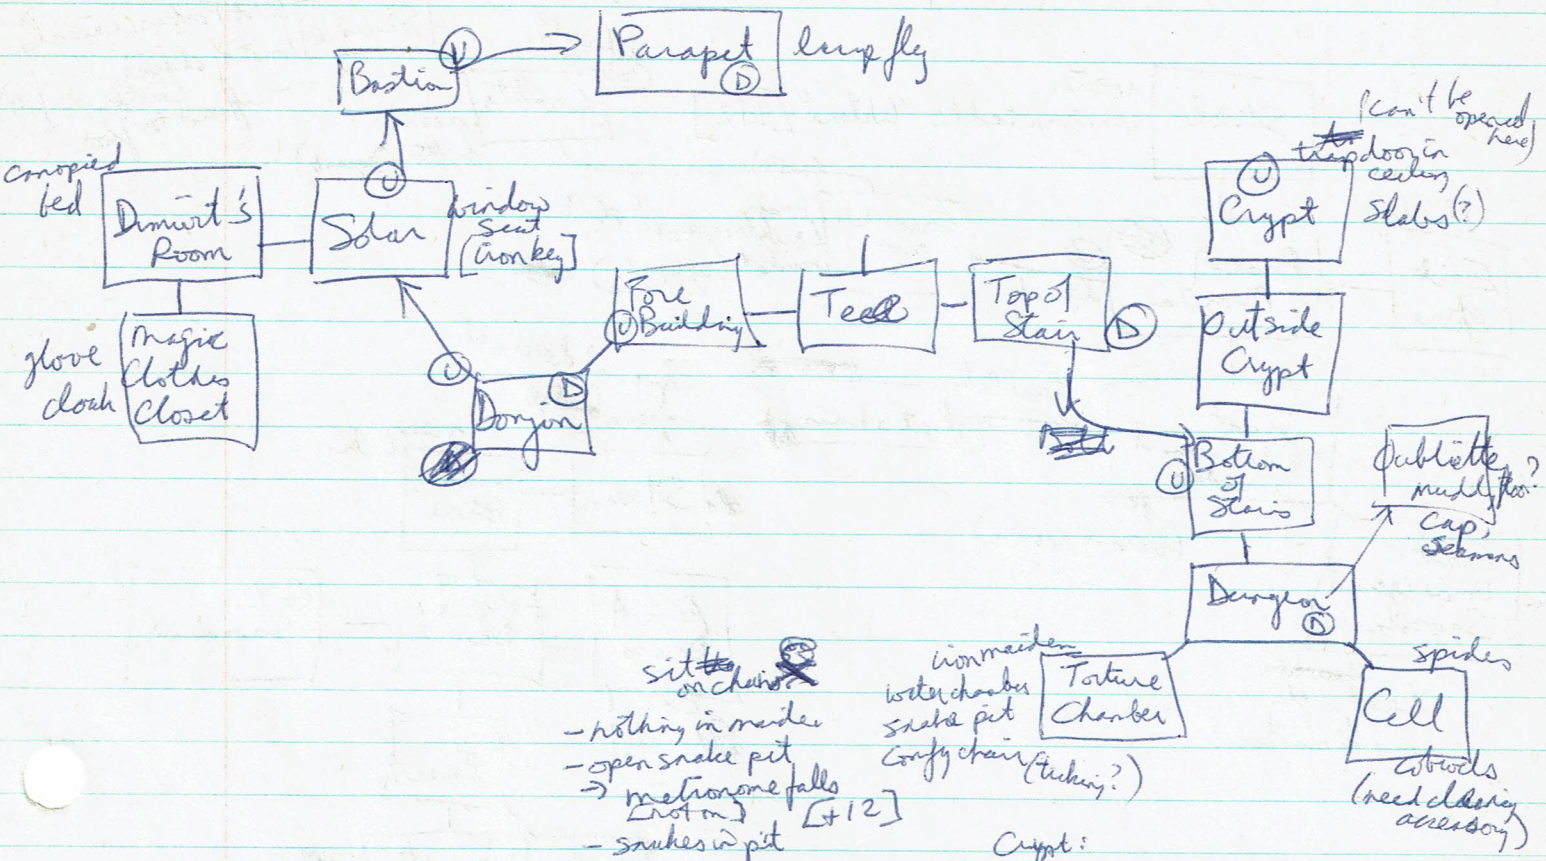 U
Bastion
Parapet
D
canopied
bed
Dimwit's
Room
U
Solar
window
seat
[iron key]
glove
cloak
Magic
Clothes
Closet
Fore
U Building
Top of
Stair
D
U
D
Donjon
(can't be
opened
here)
trapdoor in
ceiling
U
Crypt
Slabs(?)
Outside
Crypt
U
Bottom
of
Stairs
Oubliette
muddy floor?
cap,
Dungeon
D
iron maiden
water chamber
snake pit
comfy chair (ticking?)
Torture
Chamber
spider
Cell
cobwebs
(need cleaning
accessory)
sit
on chair
- nothing in maiden
- open snake pit
→ metronome falls
[not on] [+12]
- snakes in pit
Crypt: